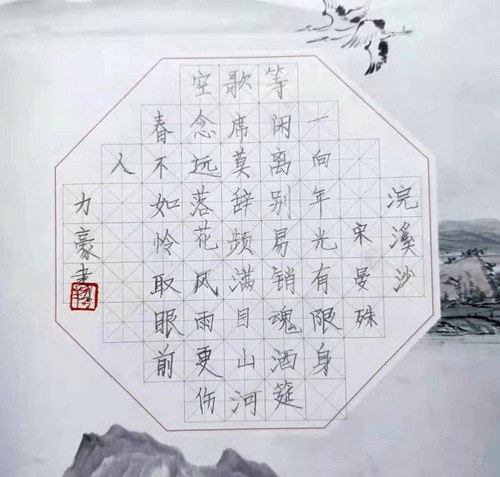 浣溪沙
宋晏殊
一向年光有限身
等闲离别易销魂酒筵
歌席莫辞频满目山河
空念远落花风雨更伤
春不如怜取眼前
人
力豪书